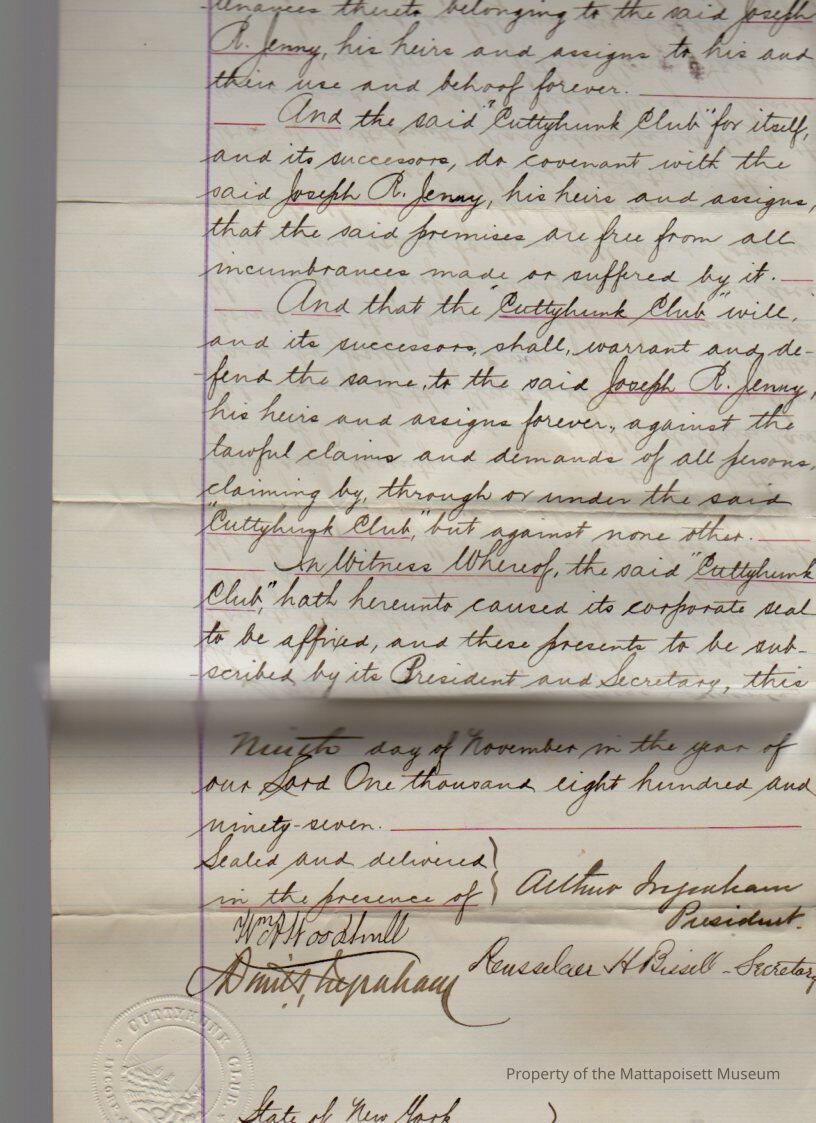 -tenances thereto belonging to the said Joseph
R. Jenny, his heirs and assigns to his and
their use and behoof forever.
And the said "Cuttyhunk Club" for itself,
and its successors, do covenant with the
said Joseph R. Jenny, his heirs and assigns,
that the said premises are free from all
incumbrances made or suffered by it.
And that the "Cuttyhunk Club" will,
and its successors, shall, warrant and de-
-fend the same, to the said Joseph R. Jenny,
his heirs and assigns forever, against the
lawful claims and demands of all persons,
claiming by, through or under the said
"Cuttyhunk Club," but against none other.
In Witness Whereof, the said "Cuttyhunk
Club," hath hereunto caused its corporate seal
to be affixed, and these presents to be sub-
-scribed by its President and Secretary, this
Ninth day of November in the year of
our Lord One thousand eight hundred and
ninety-seven.
Sealed and delivered
in the presence of
Arthur Ingraham
President.
Wm A Woodhull
Rensselaer H Bissell - Secretary
Ingraham
CUTTYHUNK CLUB
INCOR
Property of the Mattapoisett Museum
State of New York